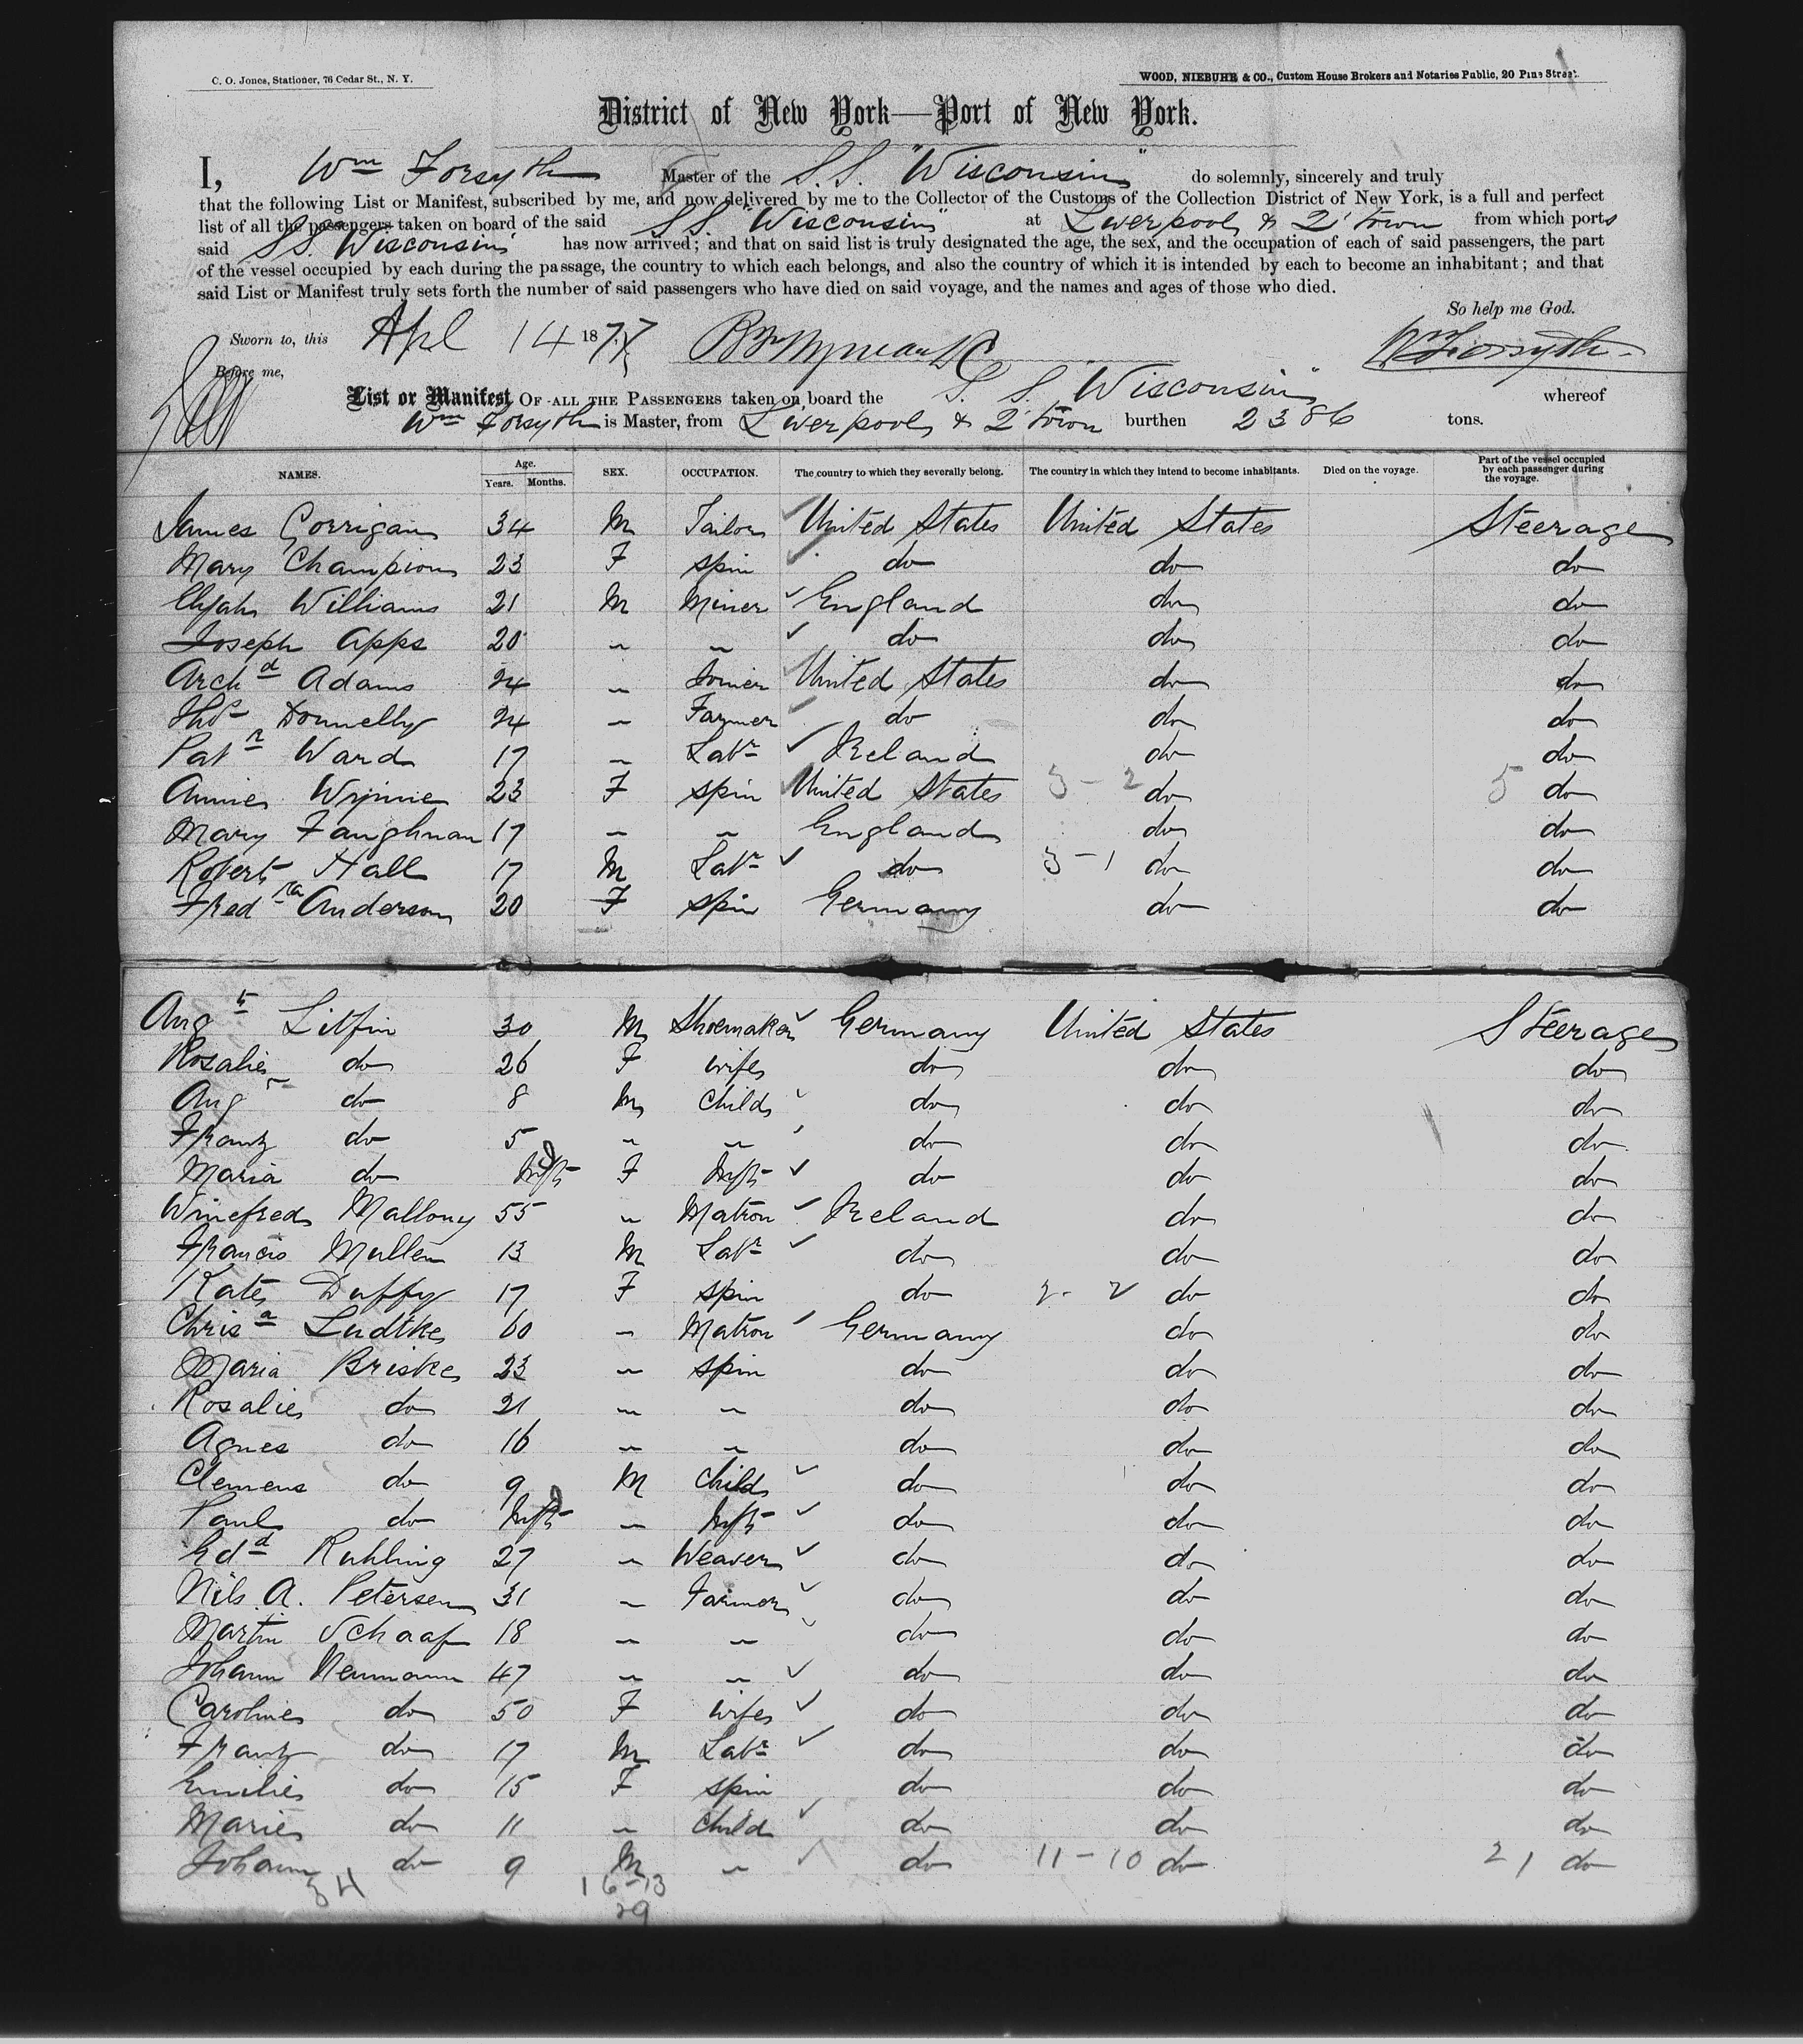 C. O. Jones, Stationer, 76 Cedar St., N. Y.
WOOD, NIEBUHR & CO., Custom House Brokers and Notaries Public, 20 Pine Street.
District of New York—Port of New York.
I, Wm Forsyth Master of the S.S. "Wisconsin" do solemnly, sincerely and truly
that the following List or Manifest, subscribed by me, and now delivered by me to the Collector of the Customs of the Collection District of New York, is a full and perfect
list of all the passengers taken on board of the said SS. "Wisconsin" at Liverpool & Q'town from which ports
said SS. Wisconsin has now arrived; and that on said list is truly designated the age, the sex, and the occupation of each of said passengers, the part
of the vessel occupied by each during the passage, the country to which each belongs, and also the country of which it is intended by each to become an inhabitant; and that
said List or Manifest truly sets forth the number of said passengers who have died on said voyage, and the names and ages of those who died.
So help me God.
Sworn to, this Apl 14 1877 Wm Forsyth
Before me,
List or Manifest OF ALL THE PASSENGERS taken on board the S. S. "Wisconsin" whereof
Wm Forsyth is Master, from Liverpool & Q'town burthen 2386 tons.
NAMES. Age. Years. Months. SEX. OCCUPATION. The country to which they severally belong. The country in which they intend to become inhabitants. Died on the voyage. Part of the vessel occupied by each passenger during the voyage.
James Corrigan 34 M Tailor United States United States Steerage
Mary Champion 23 F spin do do do
Elijah Williams 21 M Miner England do do
Joseph Apps 20 " " do do do
Archd Adams 24 " Joiner United States do do
Thos Donnelly 24 " Farmer do do do
Patk Ward 17 " Labr Ireland do do
Annie Wynne 23 F spin United States 3 - 2 do 5 do
Mary Faughnan 17 " " England do do
Robert Hall 17 M Labr do 3 - 1 do do
Fredka Anderson 20 F spin Germany do do
Augt Litfin 30 M Shoemaker Germany United States Steerage
Rosalie do 26 F wife do do do
Augt do 8 M Child do do do
Frantz do 5 " " do do do
Maria do Inft F Inft do do do
Winefred Mallony 55 " Matron Ireland do do
Francis Mullen 13 M Labr do do do
Kate Duffy 17 F spin do do do
Chrisa Ludtke 60 " Matron Germany do do
Maria Briske 23 " spin do do do
Rosalie do 21 " " do do do
Agnes do 16 " " do do do
Clemens do 9 M Child do do do
Paul do Inft " Inft do do do
Edd Ruhling 27 " Weaver do do do
Nils A. Petersen 31 " Farmer do do do
Martin Schaaf 18 " " do do do
Johann Neumann 47 " " do do do
Caroline do 50 F wife do do do
Frantz do 17 M Labr do do do
Emilie do 15 F spin do do do
Marie do 11 " Child do do do
Johann do 9 M " do 11 - 10 do 21 do
34 16-13
29